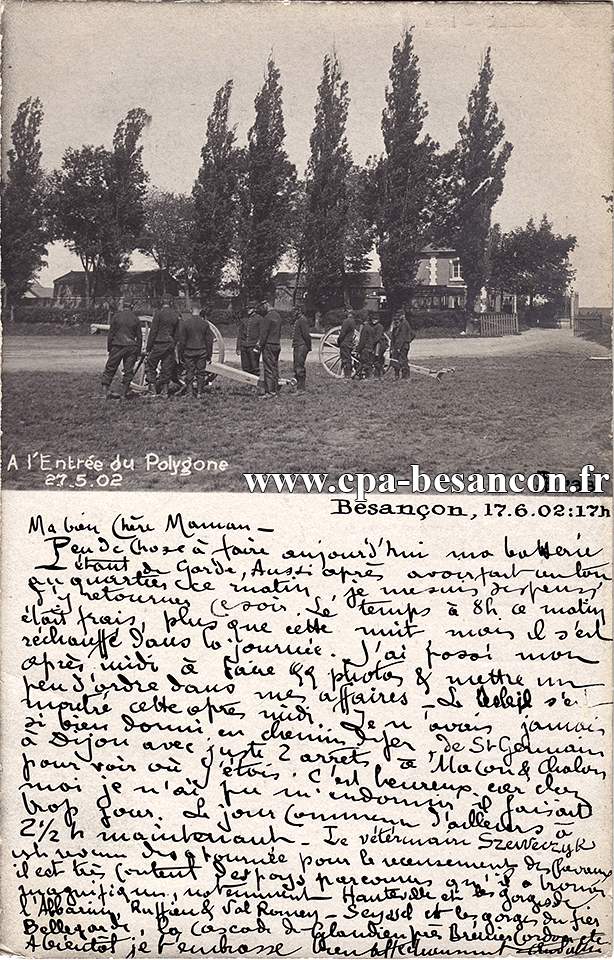 A l'Entrée du Polygone
27.5.02
www.cpa-besancon.fr
Besançon, 17.6.02:17h
Ma bien Chère Maman —
Peu de chose à faire aujourd'hui ma batterie
étant de Garde, Aussi après avoir fait un tour
au quartier ce matin, je me suis dispensé
d'y retourner ce soir. Le temps à 8h ce matin
était frais, plus que cette nuit mais il s'est
réchauffé dans la journée. J'ai passé mon
après midi à faire qq photos & mettre un
peu d'ordre dans mes affaires — Le soleil s'est
montré cette après midi. Je n'avais jamais
si bien dormi en chemin de fer, de St Germain
à Dijon avec juste 2 arrêts, à Macon & Chalon
pour voir où j'étois. C'est heureux car chez
moi je n'ai pu m'endormir, il faisait
trop jour. Le jour commence d'ailleurs à
2½ h maintenant — Le vétérinaire Szewczyk
est revenu de sa tournée pour le recensement des chevaux
il est très content des pays parcourus qu'il a trouvés
magnifiques, notamment Hauteville et les gorges de
l'Albarine, Ruffieu & Val Romey — Seyssel et les gorges du fier
Bellegarde, la cascade de Glandieu près Brénier Cordon etc
A bientôt je t'embrasse bien affectueusement